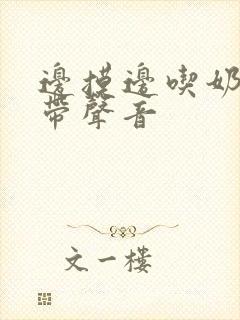 邊摸邊喫奶
帶聲音
文一樓